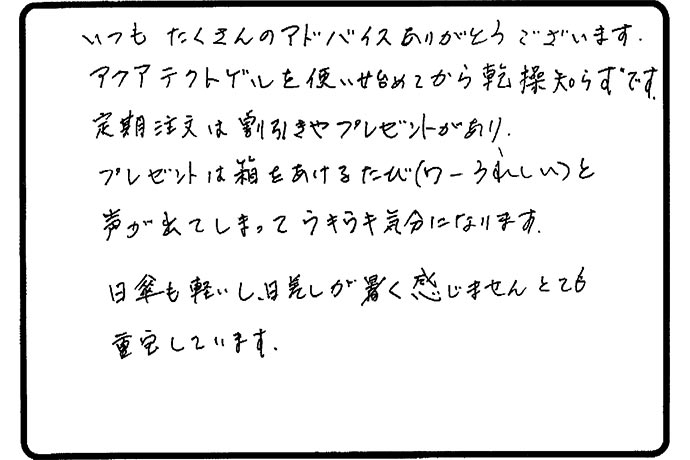 いつも たくさんのアドバイスありがとうございます.
アクアテクトゲルを使い始めてから乾操知らずです.
定期注文は割引きやプレゼントがあり.
プレゼントは箱をあけるたび(ワーうれしい)と
声が出てしまってウキウキ気分になります.
日傘も軽いし、日差しが暑く感じませんとても
重宝しています.